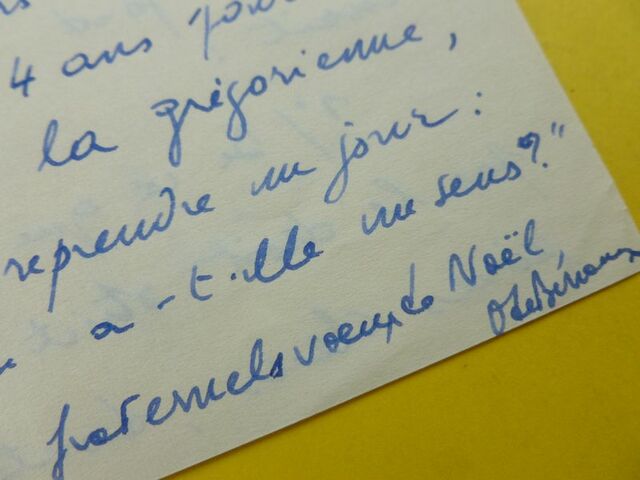 ans
4 ans pour
la grégorienne,
reprendre un jour :
a-t-elle un sens ?"
fraternels voeux de Noël